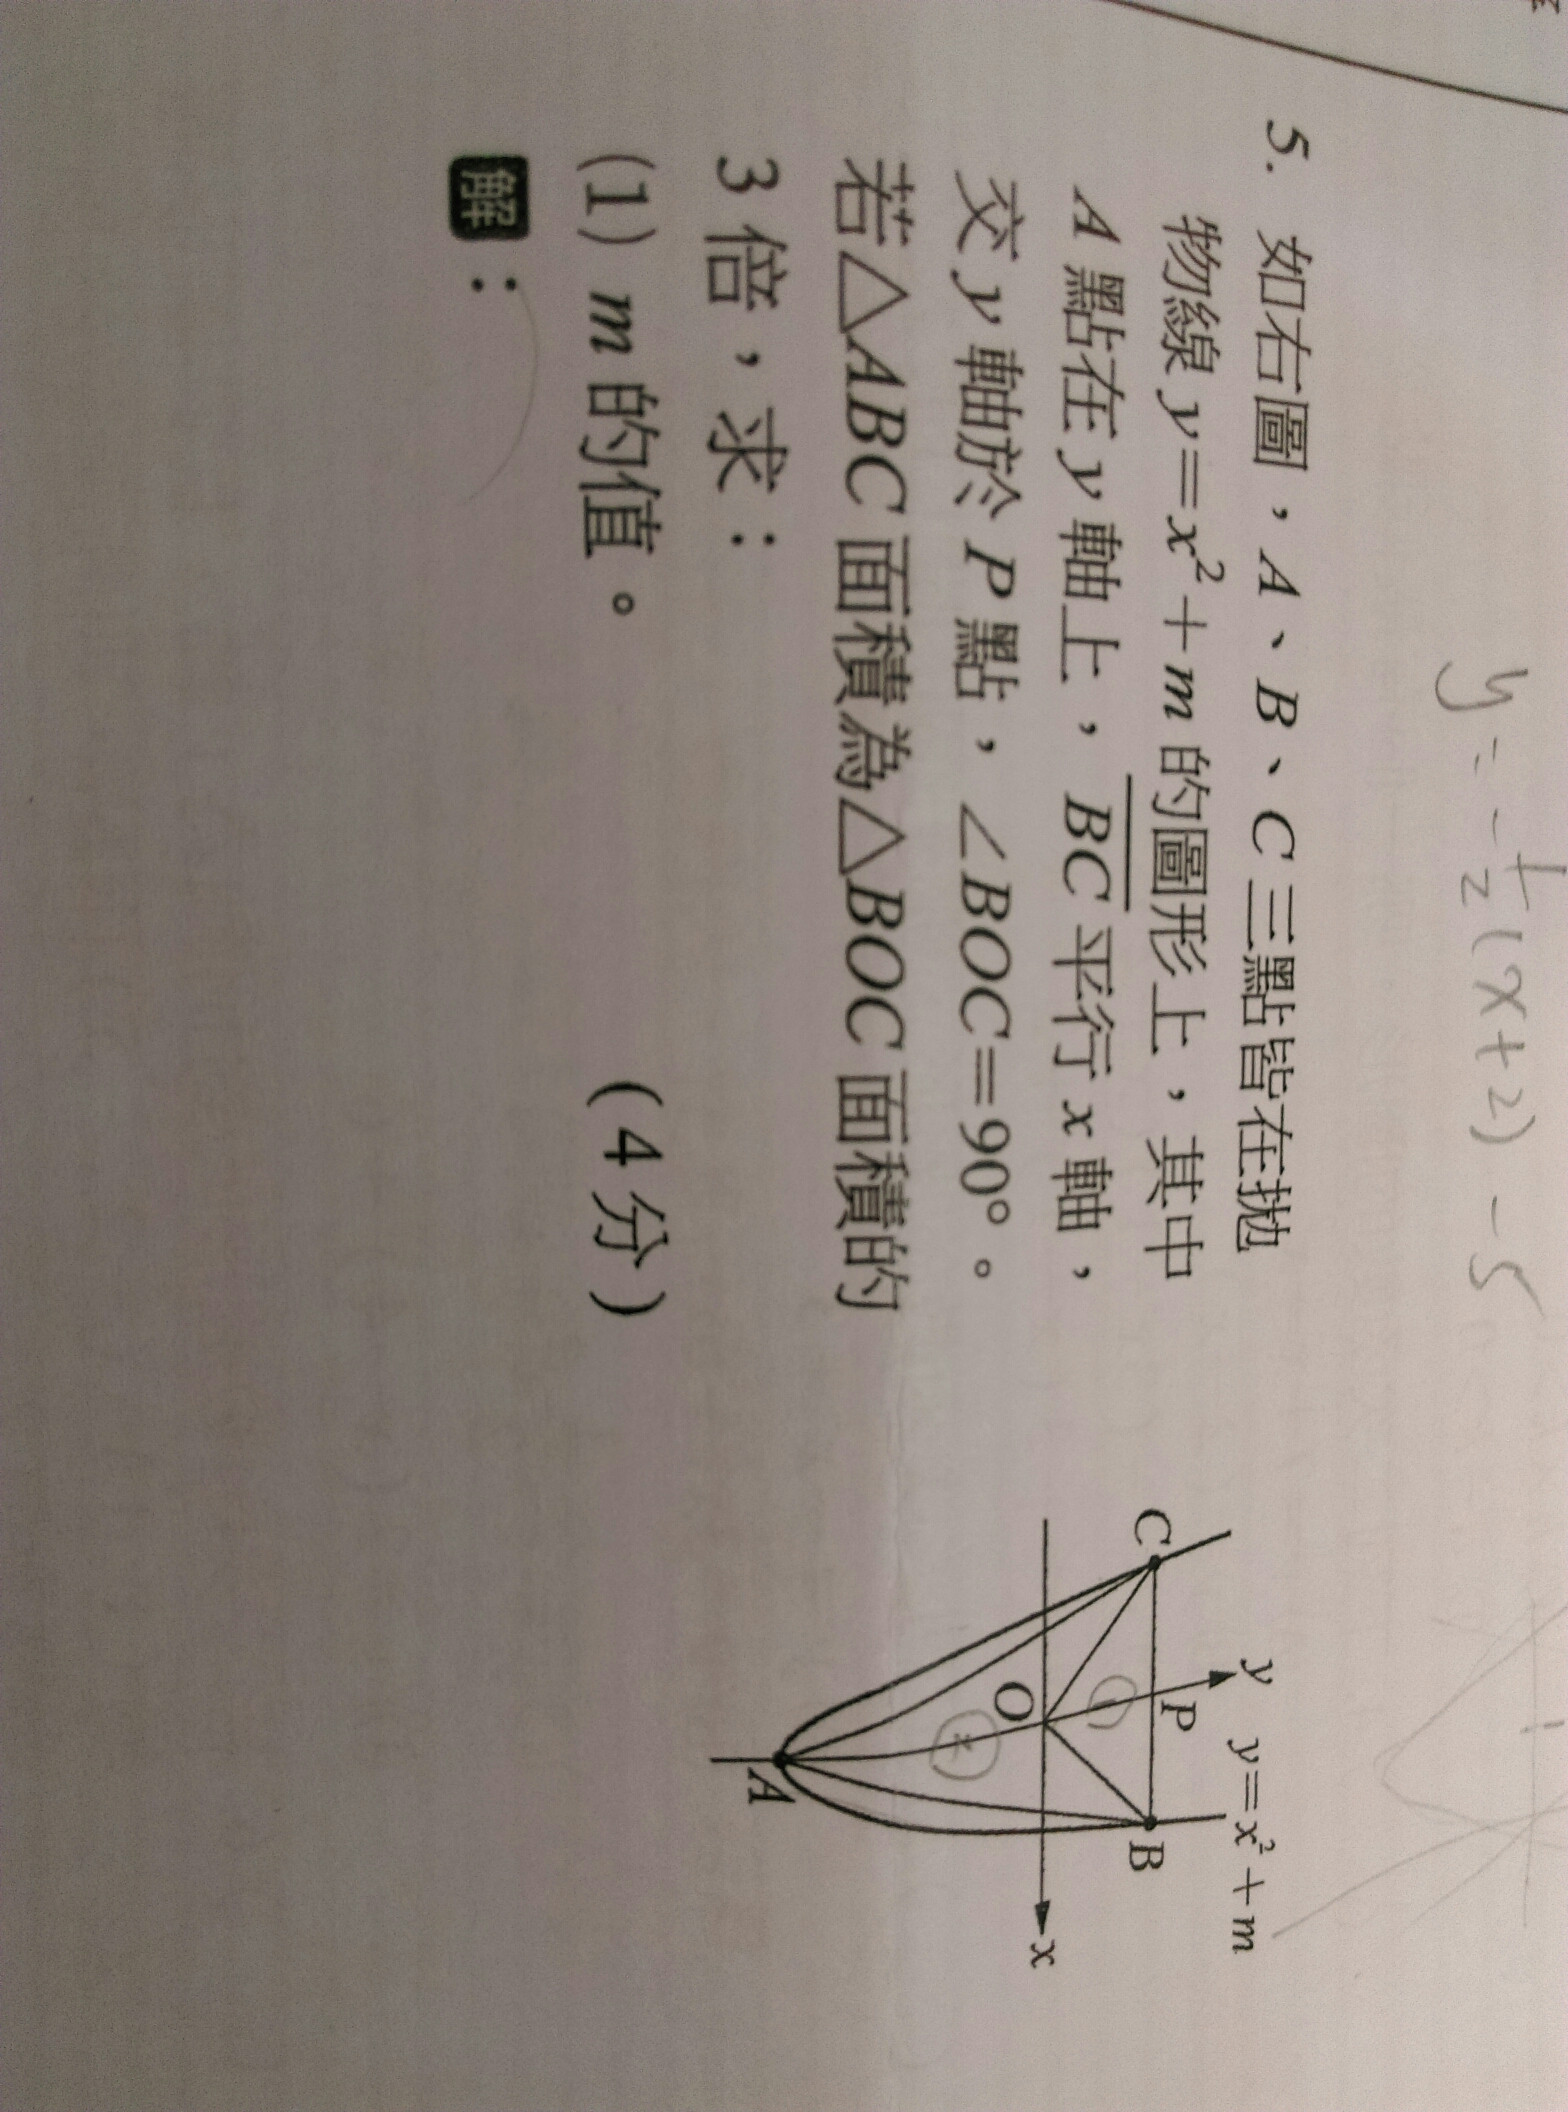 y = -1/2(x+2) - 5
5. 如右圖，A、B、C三點皆在拋
物線 y=x²+m 的圖形上，其中
A 點在 y 軸上，BC 平行 x 軸，
交 y 軸於 P 點，∠BOC=90°。
若△ABC 面積為△BOC 面積的
3 倍，求：
(1) m 的值。 (4 分)
解：
y y=x²+m
C P B
O x
A